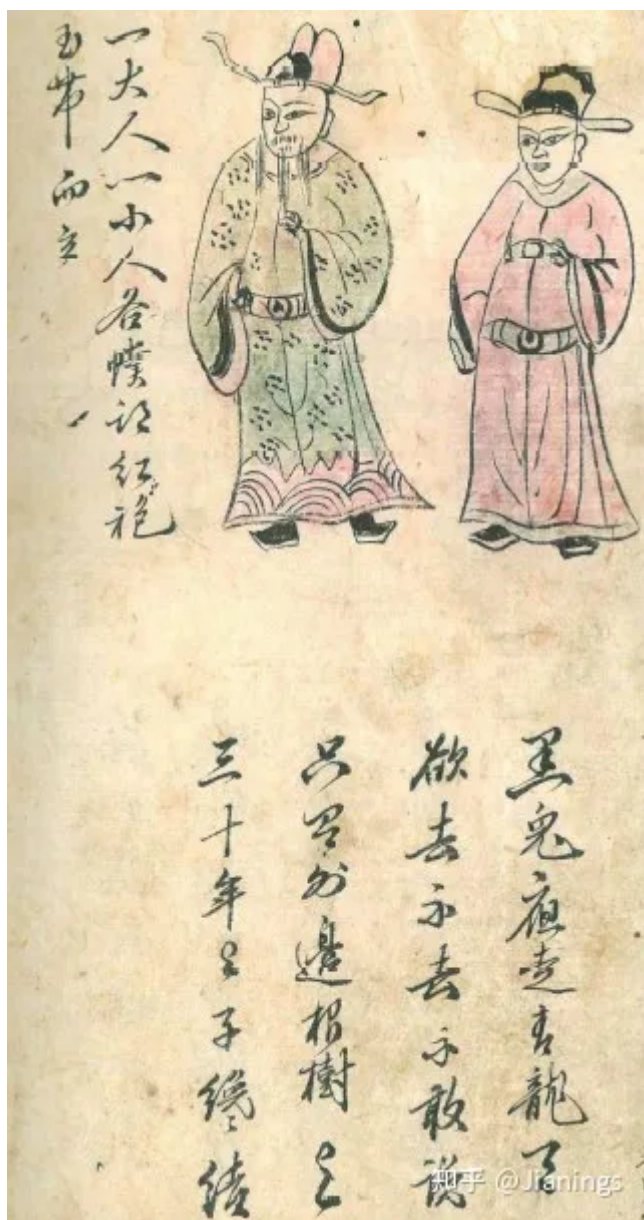 一大人一小人各幞头紅袍
玉帶而立
黑兔應走青龍穴
欲去不去不敢說
只外邊根樹上
三十年上子續
知乎 @Jianings